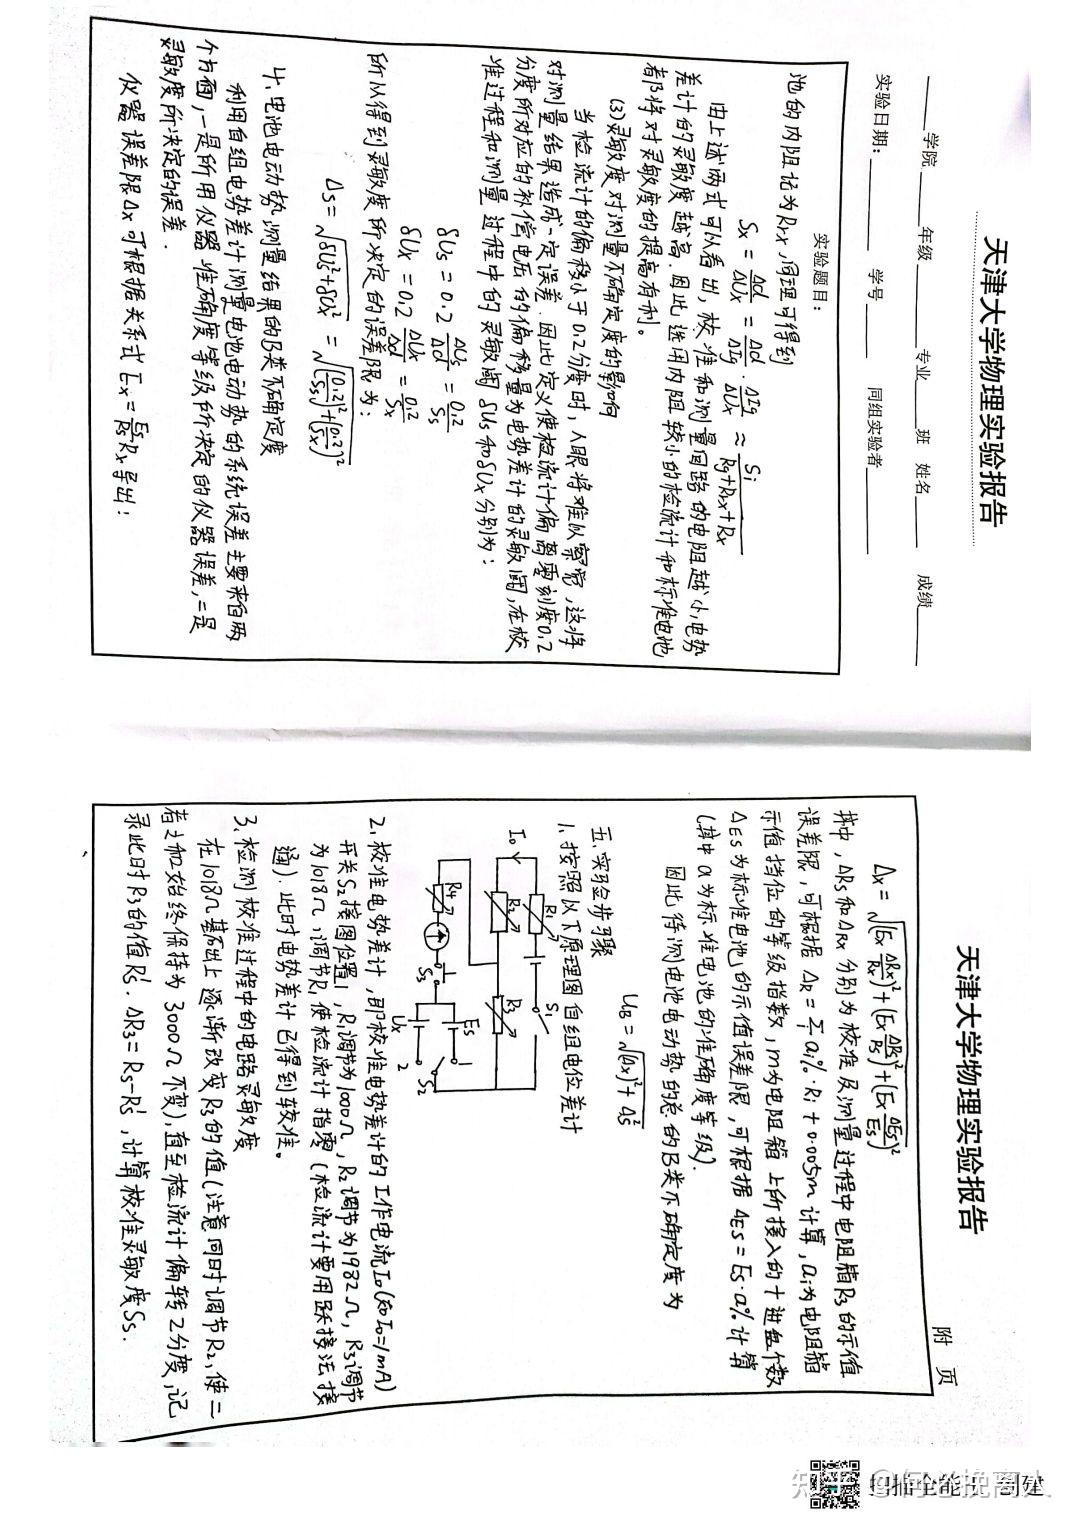 天津大学物理实验报告
学院 年级 专业 班 姓名 成绩
实验日期： 学号 同组实验者
实验题目：
池的内阻记为Rrx,同理可得到
Sx = Δd/ΔUx = Δd/ΔIg · ΔIg/ΔUx ≈ Si/(Rg+Rrx+Rx)
由上述两式可以看出,校准和测量回路的电阻越小,电势
差计的灵敏度越高.因此选用内阻较小的检流计和标准电池
都将对灵敏度的提高有利。
(3)灵敏度对测量不确定度的影响
当检流计的偏移小于0.2分度时,人眼将难以察觉,这将
对测量结果造成一定误差.因此定义使检流计偏离零刻度0.2
分度所对应的补偿电压的偏移量为电势差计的灵敏阈,在校
准过程和测量过程中的灵敏阈δUs和δUx分别为:
δUs = 0.2 ΔUs/Δd = 0.2/Ss
δUx = 0.2 ΔUx/Δd = 0.2/Sx
所以得到灵敏度所决定的误差限为:
Δs = √(δUs²+δUx²) = √((0.2/Ss)²+(0.2/Sx)²)
4.电池电动势测量结果的B类不确定度
利用自组电势差计测量电池电动势的系统误差主要来自两
个方面,一是所用仪器准确度等级所决定的仪器误差,二是
灵敏度所决定的误差.
仪器误差限Δx可根据关系式Ex = Es/Rs Rx导出:
天津大学物理实验报告
附 页
Δx = √((Ex ΔRx/Rx)²+(Ex ΔRs/Rs)²+(Ex ΔEs/Es)²)
其中,ΔRs和ΔRx分别为校准及测量过程中电阻箱R3的示值
误差限,可根据ΔR = Σ ai%·Ri + 0.005m计算,ai为电阻箱
示值挡位的等级指数,m为电阻箱上所接入的十进盘个数
ΔEs为标准电池的示值误差限,可根据ΔEs = Es·a%计算
(其中a为标准电池的准确度等级).
因此待测电池电动势的总的B类不确定度为
UB = √((Δx)²+Δs²)
五.实验步骤
1.按照以下原理图自组电位差计
I0 R1 S1
R2 R3
R4 S3 Es 1
Ux 2 S2
2.校准电势差计,即校准电势差计的工作电流I0(知I0=1mA)
开关S2接图位置1,R1调节为1000Ω,R2调节为1982Ω,R3调节
为1018Ω,调节R1使检流计指零(检流计要用跃接法接
通).此时电势差计已得到较准。
3.检测校准过程中的电路灵敏度
在1018Ω基础上逐渐改变R3的值(注意同时调节R2,使二
者之和始终保持为3000Ω不变),直至检流计偏转2分度,记
录此时R3的值Rs'.ΔR3 = Rs-Rs',计算校准灵敏度Ss.
知乎 @何必挽离人
扫描全能王 创建